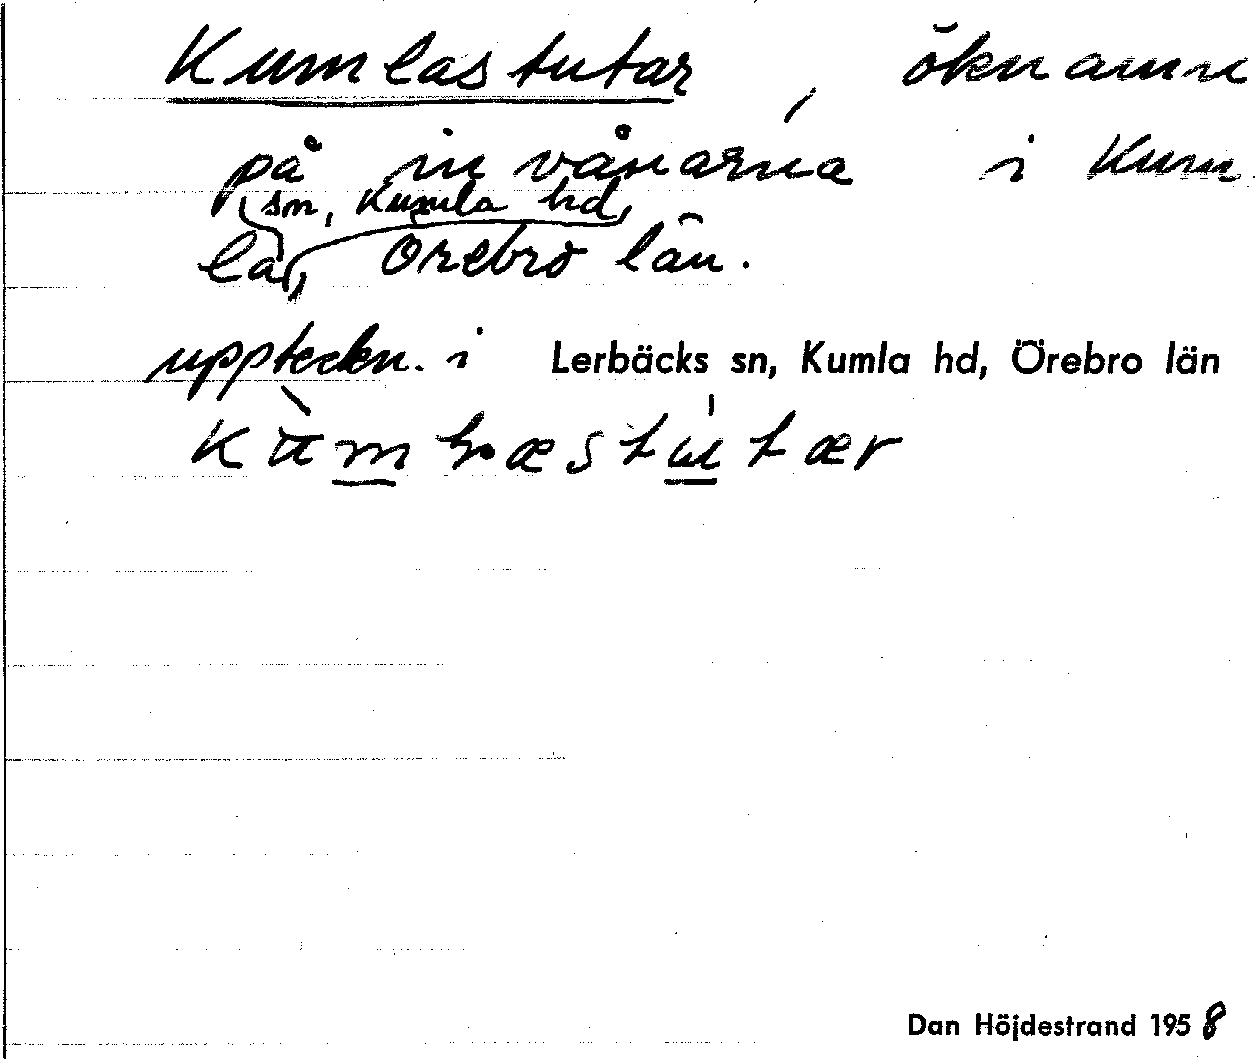 Kumlastutar, öknamn
på invånarna i Kum
sn, Kumla hd,
la, Örebro län.
uppteckn. i Lerbäcks sn, Kumla hd, Örebro län
Dan Höjdestrand 1958